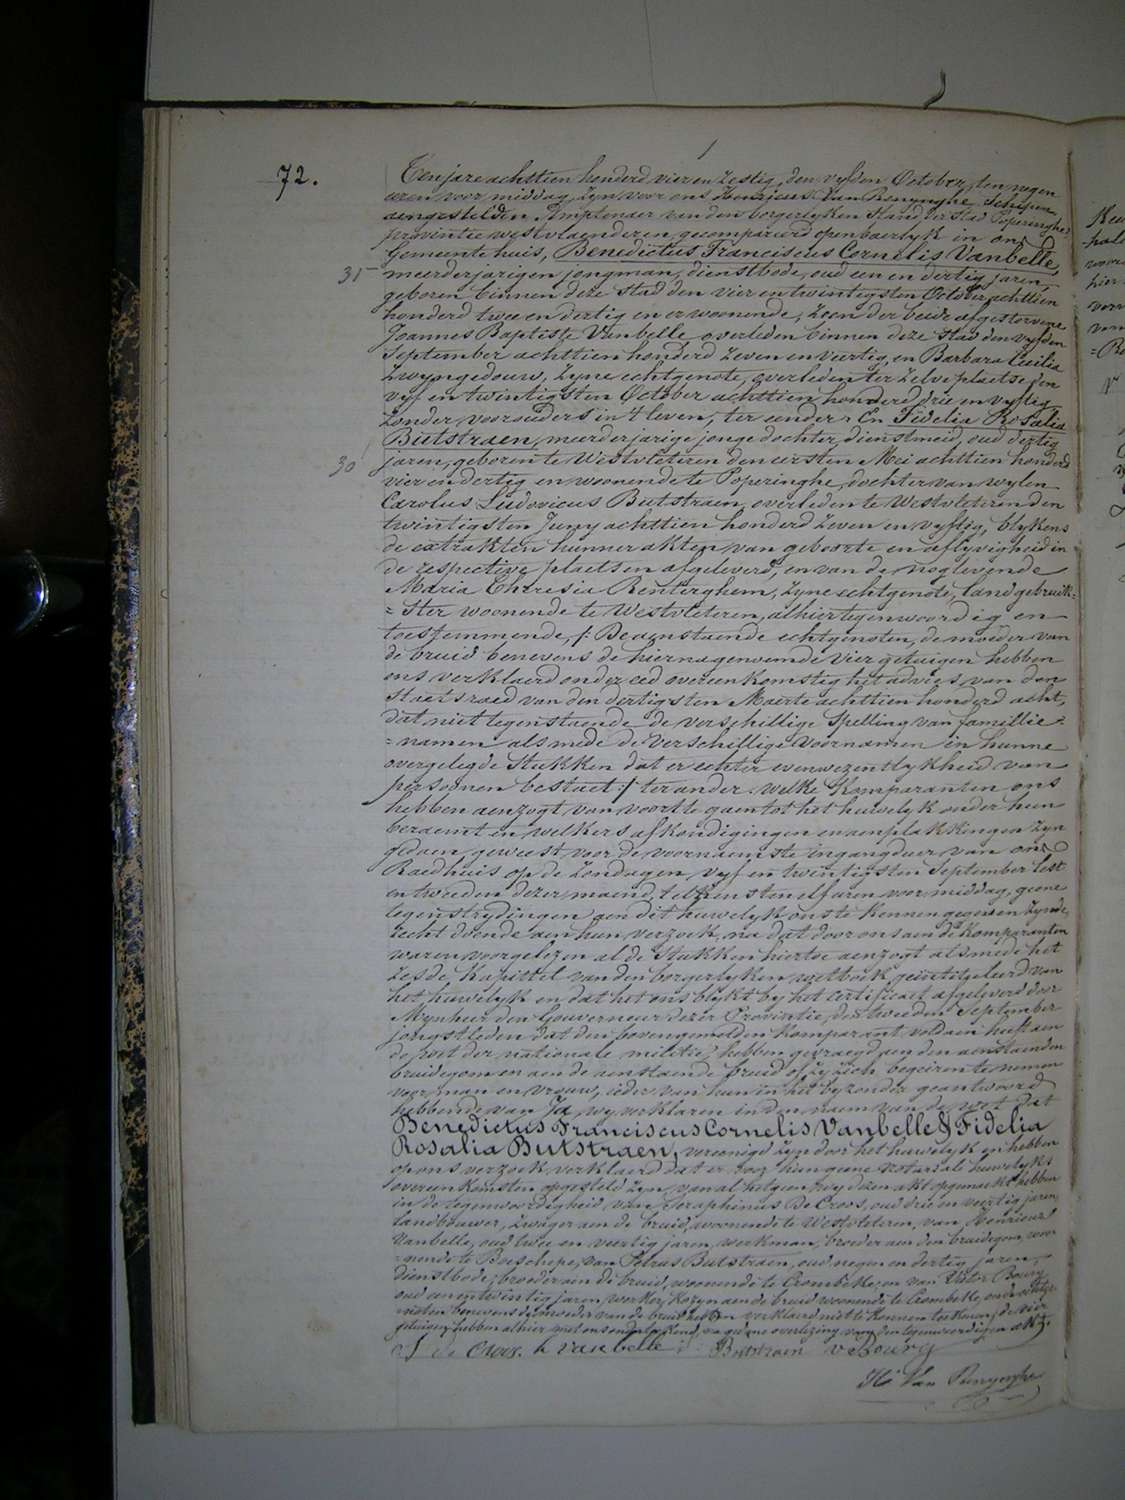 72.
Ten jare achttien honderd vier en zestig, den vyfden October, ten negen
uren voor middag, zyn voor ons Henricus Van Renynghe Schepen
aengestelden Amptenaer van den borgerlyken Stand, der stad Poperinghe,
provintie westvlaenderen, gecompareerd openbaerlyk in ons
Gemeente huis, Benedictus Franciscus Cornelis Vanbelle,
31
meerderjarigen jongman, dienstbode, oud een en dertig jaren,
geboren binnen deze stad den vier en twintigsten October achttien
honderd twee en dertig en er woonende, zoon der beide afgestorvene
Joannes Baptiste Vanbelle overleden binnen deze stad den vyfden
September achttien honderd zeven en veertig, en Barbara Cecilia
Zwyngedouw, zyne echtgenote, overleden ter zelve plaetse den
vyf en twintigsten October achttien honderd drie en vyftig
zonder voorouders in 't leven, ter eender. En Fidelia Rosalia
Butstraen, meerderjarige jonge dochter, dienstmeid, oud dertig
30
jaren, geboren te Westvleteren den eersten Mei achttien honderd
vier en dertig en woonende te Poperinghe, dochter van wylen
Carolus Ludovicus Butstraen, overleden te Westvleteren den
twintigsten Juny achttien honderd zeven en vyftig, blykens
de extrakten hunner akten van geboorte en aflyvigheid in
de respective plaetsen afgeleverd, en van de noglevende
Maria Theresia Renterghem, zyne echtgenote, landgebruik=
=ster woonende te Westvleteren, alhier tegenwoordig en
toestemmende, /: Beaenstaende echtgenoten, de moeder van
de bruid benevens de hiernagenoemde vier getuigen hebben
ons verklaerd onder eed overeenkomstig het advies van den
Staetsraed van den dertigsten Maerte achttien honderd acht,
dat niet tegenstaende de verschillige spelling van famillie=
=namen alsmede de verschillige voornamen in hunne
overgelegde stukken dat er echter eenwezentlykheid van
persoonen bestaet :/ ter ander. welke komparanten ons
hebben aenzogt van voort te gaen tot het huwelyk onder hun
beraemt en welkers afkondigingen en aenplakkingen zyn
gedaen geweest voor de voornaemste ingangdeur van ons
Raedhuis op de zondagen vyf en twintigsten September lest
en tweeden dezer maend, telkens ten elf uren voor middag, geene
tegenstrydingen aen dit huwelyk ons te kennen gegeven zynde,
recht doende aen hun verzoek, na dat door ons aen de Komparanten
waren voorgelezen al de stukken hiertoe aenzogt alsmede het
zesde Kapittel van den borgerlyken wetboek geintituleerd van
het huwelyk en dat het ons blykt by het certificaet afgeleverd door
Mynheer den Gouverneur dezer Provintie, den tweeden September
jongstleden dat den bovengemelden komparant voldaen heeft aen
de wet der nationale militie, hebben gevraegd aen den aenstaenden
bruidegom en aen de aenstaende bruid of zy zich begeiren te nemen
voor man en vrouw, ieder van hun in het byzonder geantwoord
hebbende van Ja wy verklaren in den naem van de wet dat
Benedictus Franciscus Cornelis Vanbelle & Fidelia
Rosalia Butstraen, vereenigd zyn door het huwelyk en hebben
op ons verzoek verklaerd dat er door hun geene notariale huwelyks
overeenkomsten opgesteld zyn, van al hetgeen wy dezen akt opgemaekt hebben
in de tegenwoordigheid van Seraphinus De Croos, oud drie en veertig jaren,
landbouwer, zwager aen de bruid, woonende te Westvleteren, van Henricus
Vanbelle, oud twee en veertig jaren, werkman, broeder aen den bruidegom, woo=
=nende te Boeschepe, van Petrus Butstraen, oud negen en dertig jaren,
dienstbode, broeder aen de bruid, woonende te Crombeke, en van Victor Boury
oud een en twintig jaren, werker, kozyn aen de bruid woonende te Crombeke, ende echtge=
=noten benevens de moeder van de bruid hebben verklaerd niet te konnen teekenen, de vier
getuigen hebben alhier met ons onderteekend, na gedane overlezing van den tegenwoordigen akt.
S de Croos. h vanbelle Butstraen v Boury
H. Van Renynghe